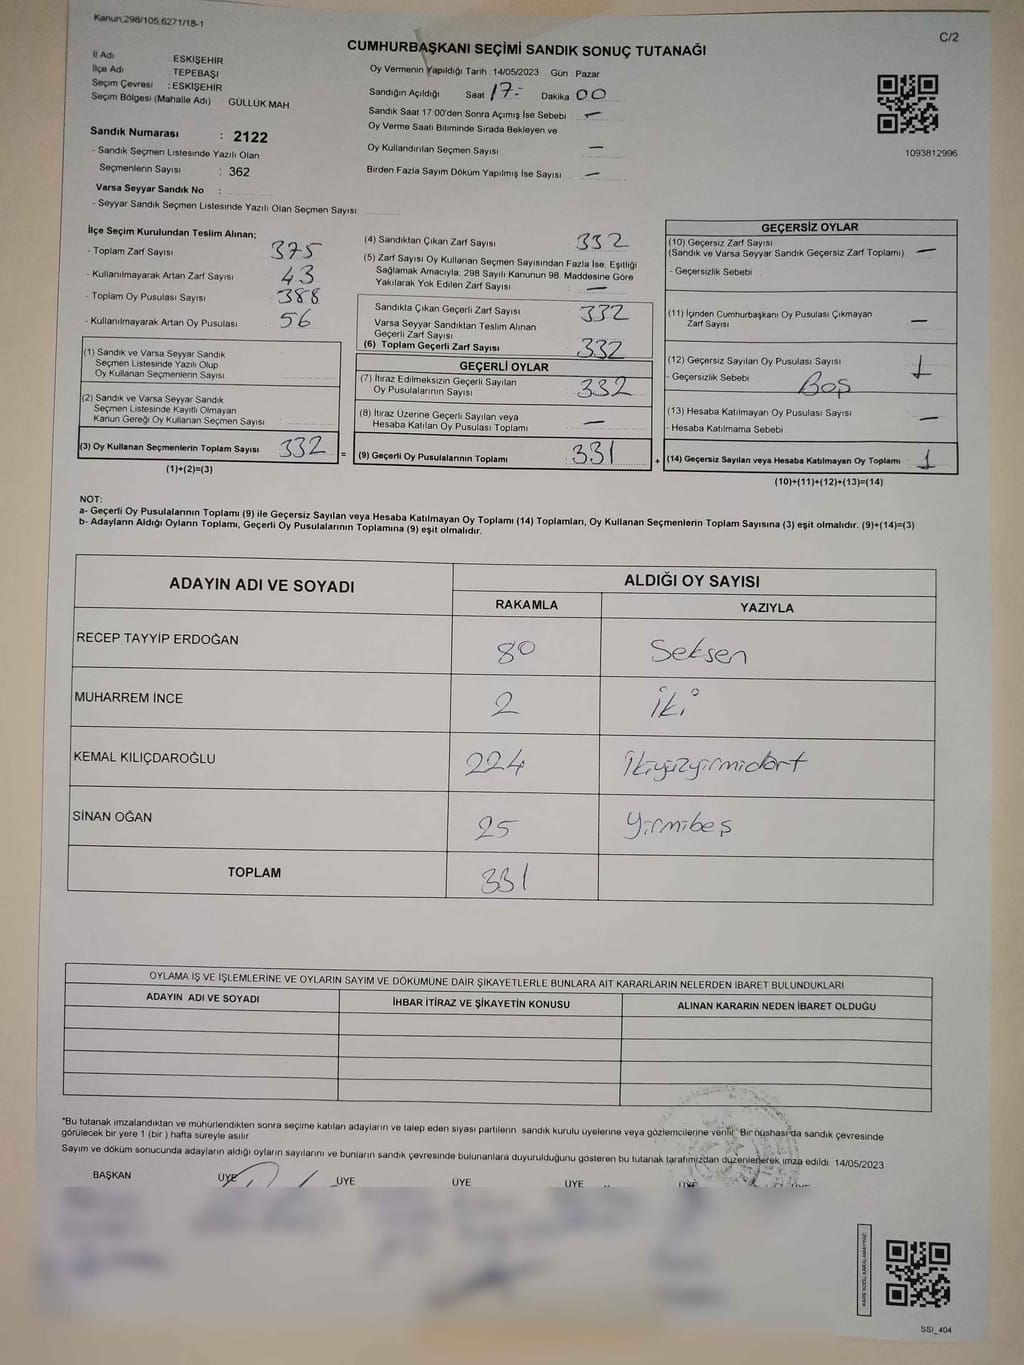 Kanun;298/105,6271/18-1
C/2
CUMHURBAŞKANI SEÇİMİ SANDIK SONUÇ TUTANAĞI
İl Adı ESKİŞEHİR
İlçe Adı TEPEBAŞI
Seçim Çevresi : ESKİŞEHİR
Seçim Bölgesi (Mahalle Adı) GÜLLÜK MAH
Oy Vermenin Yapıldığı Tarih : 14/05/2023 Gün : Pazar
Sandığın Açıldığı Saat 17- Dakika 00
Sandık Saat 17.00'den Sonra Açımış İse Sebebi : —
Oy Verme Saati Bitiminde Sırada Bekleyen ve
Oy Kullandırılan Seçmen Sayısı —
Birden Fazla Sayım Döküm Yapılmış İse Sayısı : —
1093812996
Sandık Numarası : 2122
- Sandık Seçmen Listesinde Yazılı Olan
Seçmenlerin Sayısı : 362
Varsa Seyyar Sandık No :
- Seyyar Sandık Seçmen Listesinde Yazılı Olan Seçmen Sayısı:
İlçe Seçim Kurulundan Teslim Alınan;
- Toplam Zarf Sayısı 375
- Kullanılmayarak Artan Zarf Sayısı 43
- Toplam Oy Pusulası Sayısı 388
- Kullanılmayarak Artan Oy Pusulası 56
(1) Sandık ve Varsa Seyyar Sandık
Seçmen Listesinde Yazılı Olup
Oy Kullanan Seçmenlerin Sayısı
(2) Sandık ve Varsa Seyyar Sandık
Seçmen Listesinde Kayıtlı Olmayan
Kanun Gereği Oy Kullanan Seçmen Sayısı :
(3) Oy Kullanan Seçmenlerin Toplam Sayısı 332 =
(1)+(2)=(3)
(4) Sandıktan Çıkan Zarf Sayısı 332
(5) Zarf Sayısı Oy Kullanan Seçmen Sayısından Fazla İse, Eşitliği
Sağlamak Amacıyla, 298 Sayılı Kanunun 98. Maddesine Göre
Yakılarak Yok Edilen Zarf Sayısı : —
Sandıkta Çıkan Geçerli Zarf Sayısı 332
Varsa Seyyar Sandıktan Teslim Alınan
Geçerli Zarf Sayısı
(6) Toplam Geçerli Zarf Sayısı 332
GEÇERLİ OYLAR
(7) İtiraz Edilmeksizin Geçerli Sayılan
Oy Pusulalarının Sayısı 332
(8) İtiraz Üzerine Geçerli Sayılan veya
Hesaba Katılan Oy Pusulası Toplamı —
(9) Geçerli Oy Pusulalarının Toplamı 331 +
GEÇERSİZ OYLAR
(10) Geçersiz Zarf Sayısı
(Sandık ve Varsa Seyyar Sandık Geçersiz Zarf Toplamı) : —
- Geçersizlik Sebebi :
(11) İçinden Cumhurbaşkanı Oy Pusulası Çıkmayan
Zarf Sayısı —
(12) Geçersiz Sayılan Oy Pusulası Sayısı 1
- Geçersizlik Sebebi : Boş
(13) Hesaba Katılmayan Oy Pusulası Sayısı —
- Hesaba Katılmama Sebebi :
(14) Geçersiz Sayılan veya Hesaba Katılmayan Oy Toplamı : 1
(10)+(11)+(12)+(13)=(14)
NOT:
a- Geçerli Oy Pusulalarının Toplamı (9) ile Geçersiz Sayılan veya Hesaba Katılmayan Oy Toplamı (14) Toplamları, Oy Kullanan Seçmenlerin Toplam Sayısına (3) eşit olmalıdır. (9)+(14)=(3)
b- Adayların Aldığı Oyların Toplamı, Geçerli Oy Pusulalarının Toplamına (9) eşit olmalıdır.
ADAYIN ADI VE SOYADI ALDIĞI OY SAYISI
RAKAMLA YAZIYLA
RECEP TAYYİP ERDOĞAN 80 Seksen
MUHARREM İNCE 2 İki
KEMAL KILIÇDAROĞLU 224 İkiyüzyirmidört
SİNAN OĞAN 25 Yirmibeş
TOPLAM 331
OYLAMA İŞ VE İŞLEMLERİNE VE OYLARIN SAYIM VE DÖKÜMÜNE DAİR ŞİKAYETLERLE BUNLARA AİT KARARLARIN NELERDEN İBARET BULUNDUKLARI
ADAYIN ADI VE SOYADI İHBAR İTİRAZ VE ŞİKAYETİN KONUSU ALINAN KARARIN NEDEN İBARET OLDUĞU
"Bu tutanak imzalandıktan ve mühürlendikten sonra seçime katılan adayların ve talep eden siyasi partilerin sandık kurulu üyelerine veya gözlemcilerine verilir. Bir nüshası da sandık çevresinde
görülecek bir yere 1 (bir ) hafta süreyle asılır
Sayım ve döküm sonucunda adayların aldığı oyların sayılarını ve bunların sandık çevresinde bulunanlara duyurulduğunu gösteren bu tutanak tarafımızdan düzenlenerek imza edildi 14/05/2023
BAŞKAN ÜYE ÜYE ÜYE ÜYE ÜYE
KARE KODU KARALAMAYINIZ
SSI_404